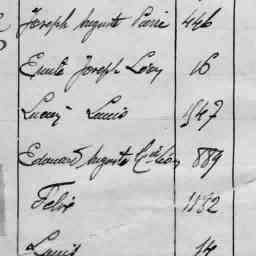 Joseph Auguste Pierre 446
Emile Joseph Léon 16
Lucien Louis 1547
Edouard Auguste 889
Félix 1132
Louis 14